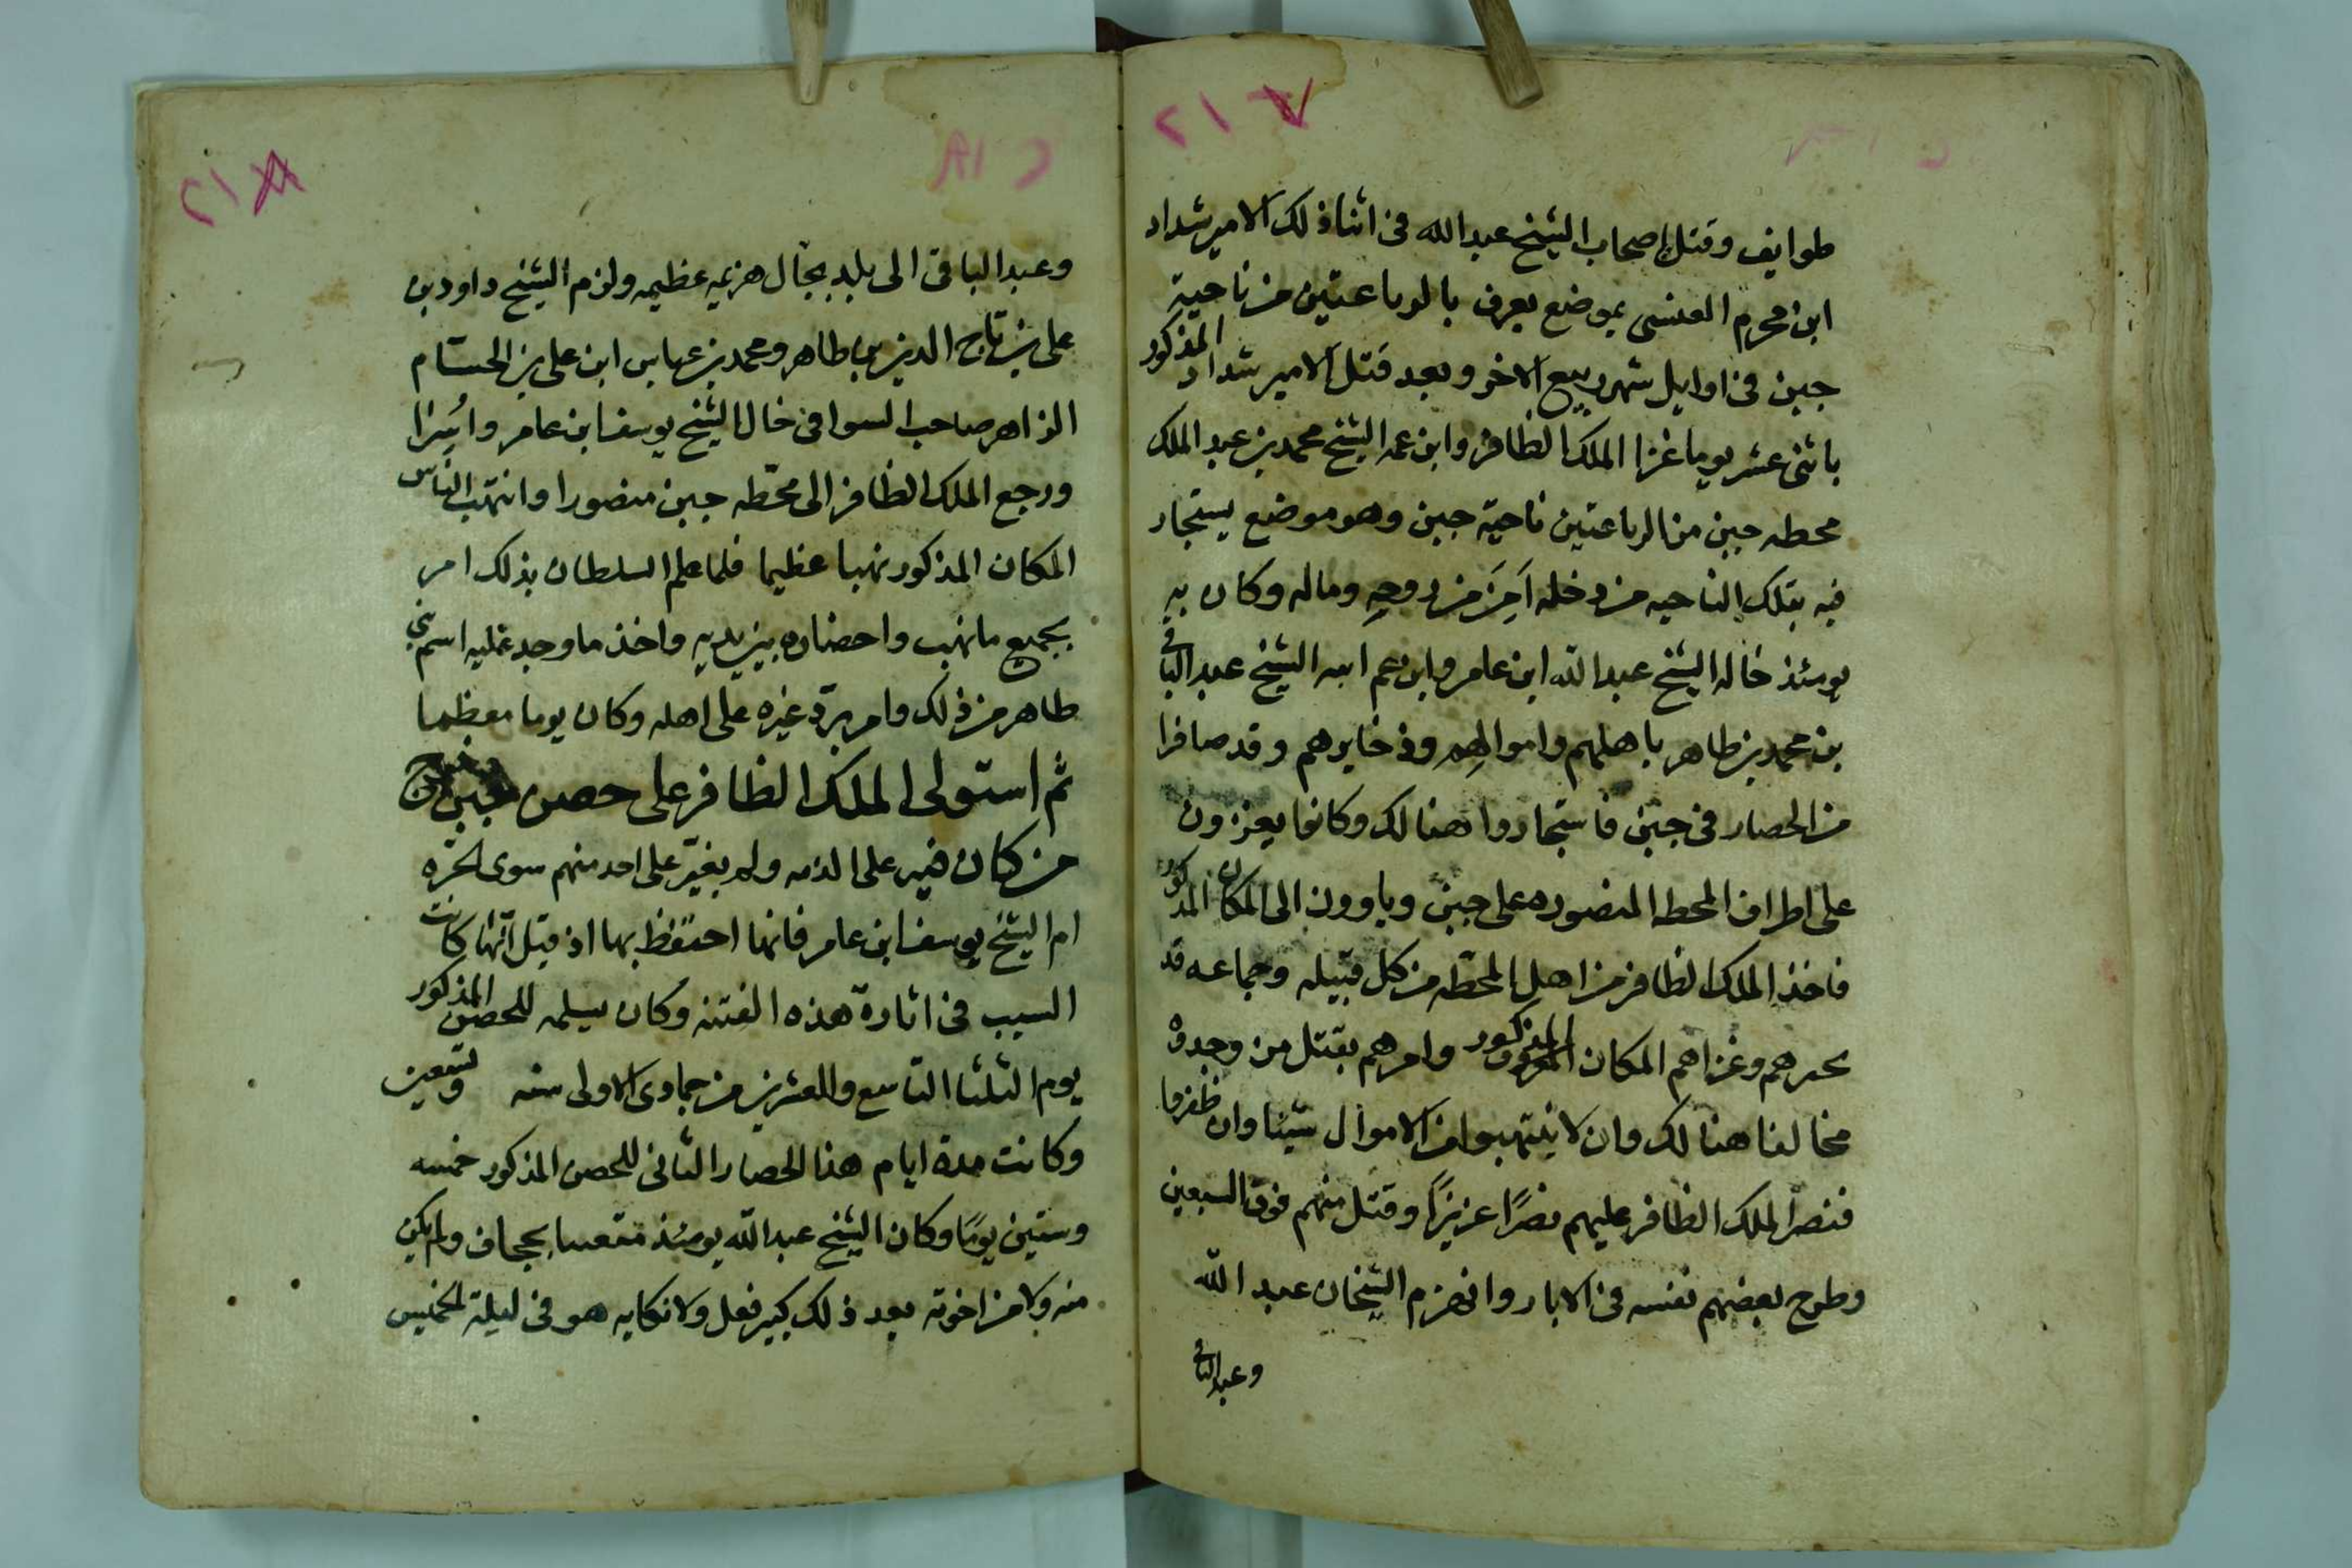 ٢١٧
طوايف وقتل اصحاب الشيخ عبدالله فى اثنا ذلك الامير شداد
ابن محرم العنسى بموضع يعرف بالرباعتين من ناحية
جبن فى اوايل شهر ربيع الاخر وبعد قتل الامير شداد المذكور
باثنى عشر يوما غزا الملك الظافر وابن عمه الشيخ محمد بن عبد الملك
محطه جبن من الرباعتين ناحية جبن وهو موضع يستجار
فيه بتلك الناحيه من دخله اَمِنَ من روحهِ وماله وكان بهِ
يومئذ خاله الشيخ عبدالله ابن عامر وابن عم ابيه الشيخ عبد الباقى
بن محمد بن طاهر باهلهم واموالهم وذخايرهم وقد صافرا
من الحصار فى جبن فاستجاروا هنالك وكانوا يغزون
على اطراف المحطه المنصوره على جبن وياوون الى المكان المذكور
فاخذ الملك الظافر من اهل المحطّه من كل قبيله وجماعه قد
وغزاهم المكان المذكور وامرهم بقتل من وجدوه
مخالفا هنالك وان لا ينتهبوا من الاموال شيئا وان ظفروا
فنصر الملك الظافر عليهم نصرًا عزيزًا وقتل منهم فوق السبعين
وطرح بعضهم نفسه فى الابار وانهزم الشيخان عبد الله
وعبدالباقى
٢١٨
وعبد الباقى الى بلد بجال هزيمه عظيمه ولزم الشيخ داود بن
على بن تاج الدين بن طاهر ومحمد بن عباس ابن على بن الحسام
الزاهر صاحب السوا فى خال الشيخ يوسف ابن عامر واُسِرَا
ورجع الملك الظافر الى محّطه جبن منصورا وانتهب الناس
المكان المذكور نهبا عظيما فلما علم السلطان بذلك امر
بجميع ما نهب واحضاره بين يديه واخذ ما وجد عليه اسم بنى
طاهر من ذلك وامر بردّ غيره على اهله وكان يوما معظما
ثم استولى الملك الظافر على حصن جبن وخرج
من كان فيه على الذمه ولم يغيّر على احد منهم سوى الحرّه
ام الشيخ يوسف ابن عامر فانها احتفظ بها اذ قيل انّها كانت
السبب فى اثارة هذه الفتنه وكان تسلمه للحصن المذكور
يوم الثلثا التاسع والعشرين من جمادى الاولى سنه وتسعين
وكانت مدة ايام هذا الحصار الثانى للحصن المذكور خمسه
وستين يومًا وكان الشيخ عبدالله يومئذ بحجاف ولم يكن
منه ولا من اخوته بعد ذلك كبير فعل ولا نكايه هو فى ليلة الخميس